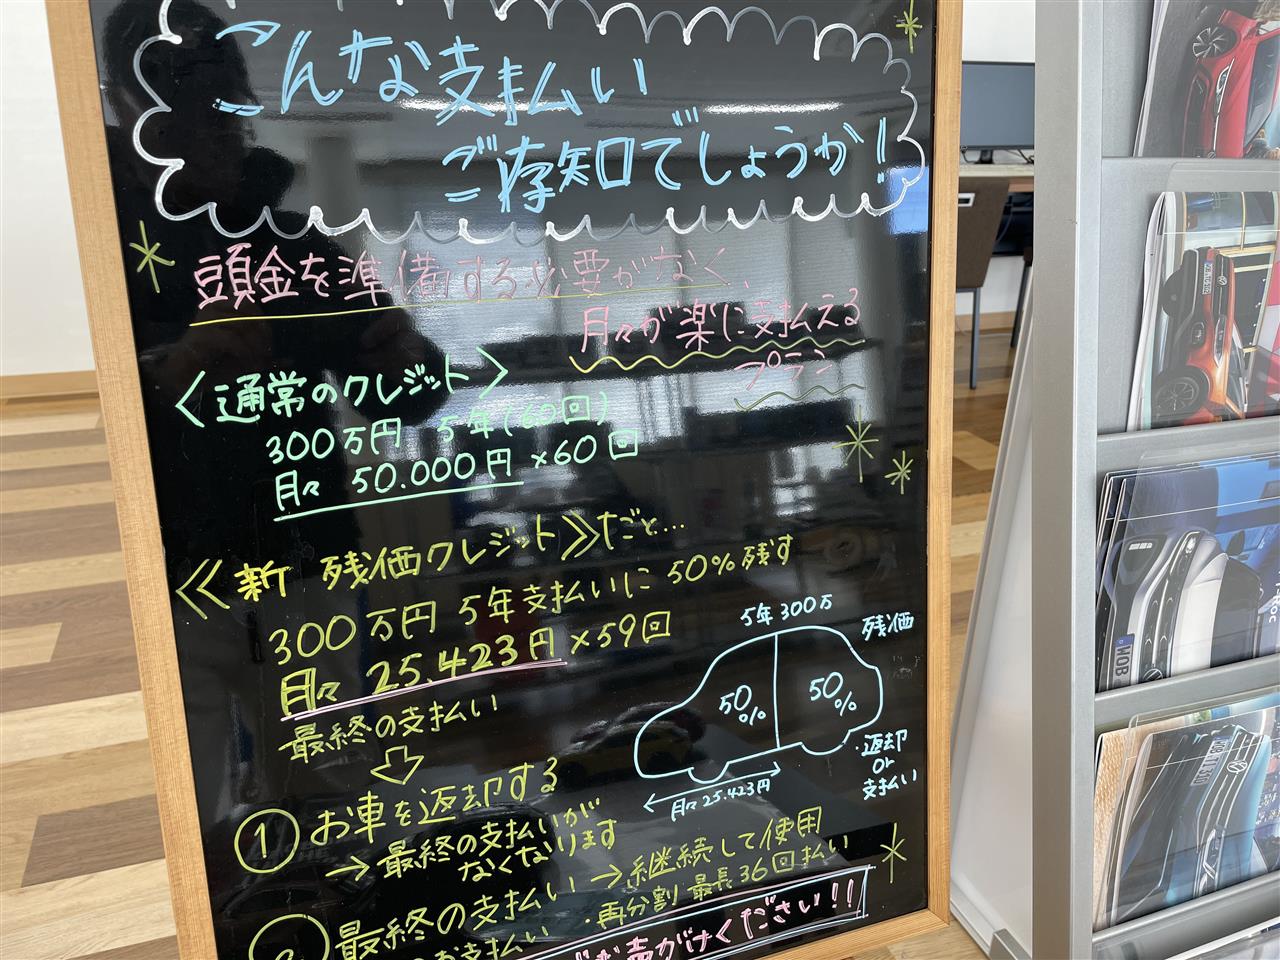 こんな支払い
ご存知でしょうか!
頭金を準備する必要がなく、
月々が楽に支払える
プラン
〈通常のクレジット〉
300万円 5年(60回)
月々 50.000円×60回
≪新 残価クレジット≫だと…
300万円 5年支払いに50%残す
月々 25.423円×59回
最終の支払い
5年300万
残価
50%
50%
月々25.423円
・返却
or
支払い
① お車を返却する
→最終の支払いが
なくなります
最終の支払い →継続して使用
お支払い ・再分割 最長36回払い
お声がけください!!
WOB